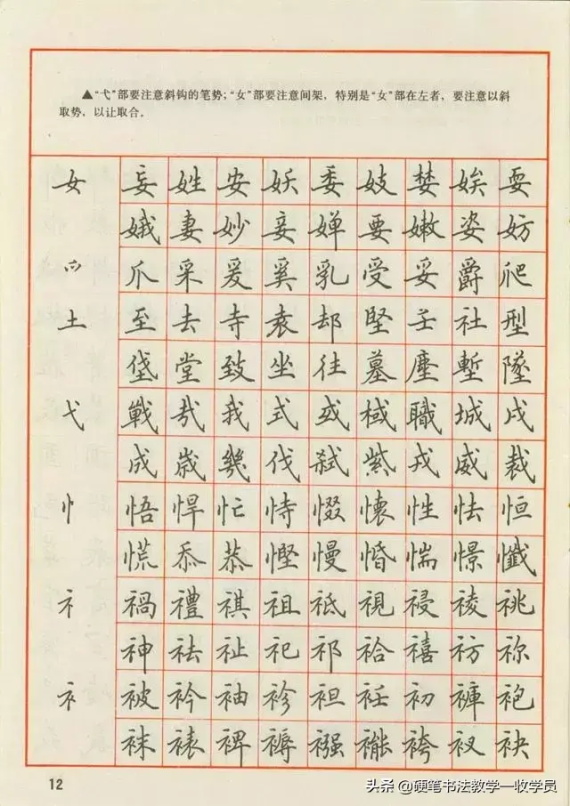 ▲“弋”部要注意斜钩的笔势;“女”部要注意间架，特别是“女”部在左者，要注意以斜
取势，以让取合。
女 妄 姓 安 妖 委 妓 婪 娭 耍
娥 妻 妙 妾 婵 要 嫩 姿 妨
爫 爪 采 爰 奚 乳 受 妥 爵 爬
土 至 去 寺 袁 却 堅 壬 社 型
垡 堂 致 坐 往 墓 塵 塹 墜
弋 戰 哉 我 式 或 棫 職 城 戍
成 歲 幾 伐 弑 紫 戎 威 裁
忄 悟 悍 忙 恃 惙 懷 性 怯 恒
慌 忝 恭 慳 慢 惛 惴 憬 懺
礻 禍 禮 祺 祖 祗 視 祲 祾 祧
神 祛 祉 祀 祁 祫 禧 祊 祢
衤 被 衿 袖 袗 袒 衽 初 褲 袍
袜 裱 裨 褥 襁 袴 衩 袂
12
头条 @硬笔书法教学一收学员